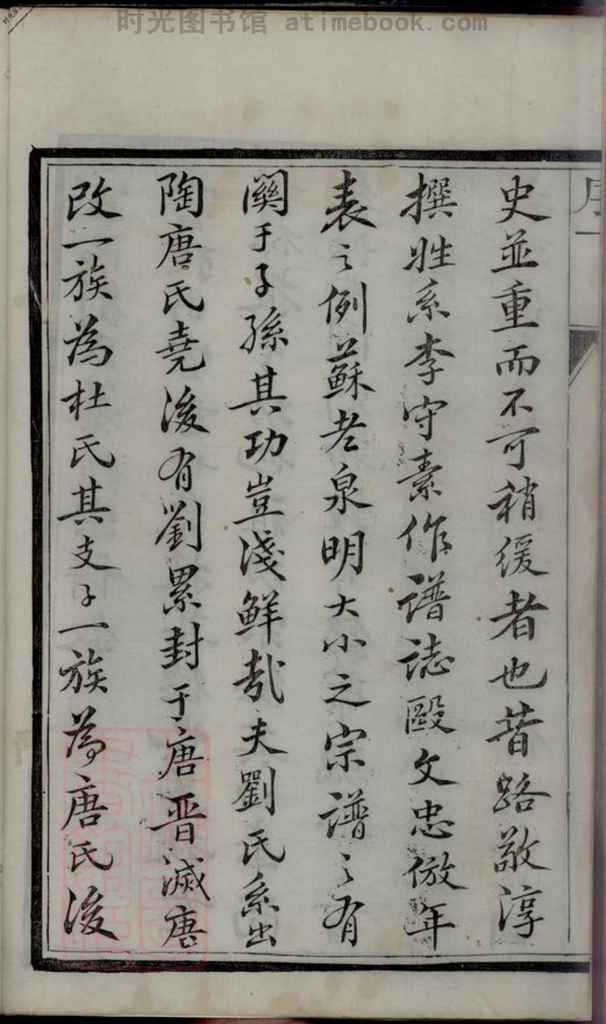 时光图书馆 atimebook.com
史並重而不可稍緩者也昔路敬淳
撰姓系李守素作谱誌毆文忠倣年
表之例蘇老泉明大小之宗谱之有
関于子孫其功豈淺鮮哉夫劉氏系出
陶唐氏堯後有劉累封于唐晋滅唐
改一族為杜氏其支子一族為唐氏後